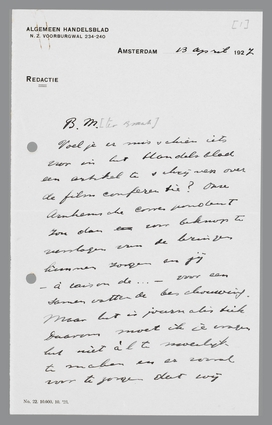 [1]
ALGEMEEN HANDELSBLAD
N. Z. VOORBURGWAL 234-240
AMSTERDAM 13 april 1927.
REDACTIE
B. M. [ter Braak]
Voel je er misschien iets
voor in het Handelsblad
een artikel te schrijven over
de film conferentie? Onze
Arnhemsche correspondent
zou dan voor beknopte
verslagen van de lezingen
kunnen zorgen en jij
- à raison de ... - voor een
samenvattende beschouwing.
Maar het is journalistiek
daarom moet ik je vragen
het niet ál te moeilijk
te maken en er vooral
voor te zorgen dat wij
No. 22. 10.000. 10. '25.